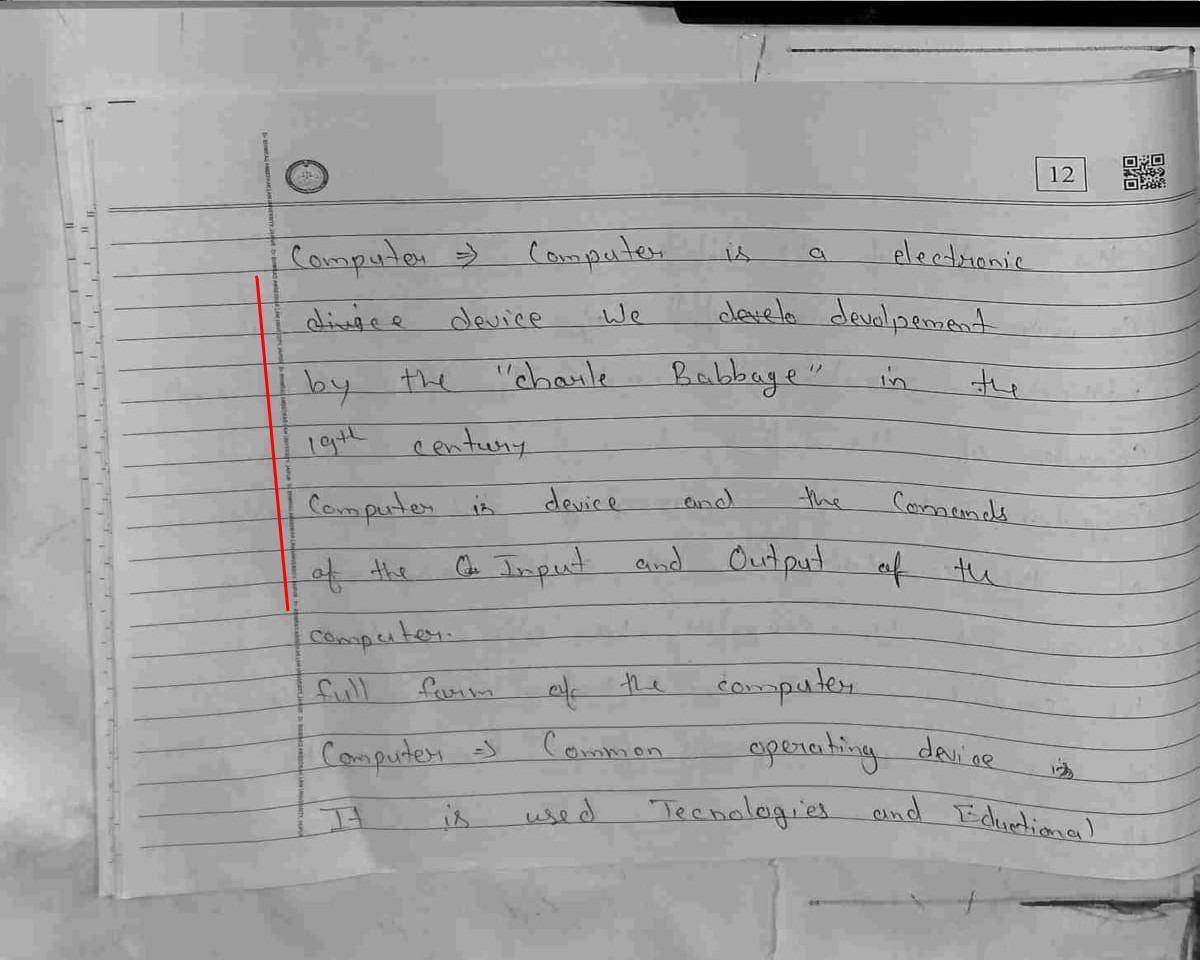 12
Computer ⇒ Computer is a electronic
divice device We develo devolpement
by the "charle Babbage" in the
19th century
Computer is device and the Comends
of the Input and Output of the
computer.
full form of the computer
Computer ⇒ Common operating device is
It is used Tecnologies and Eductional